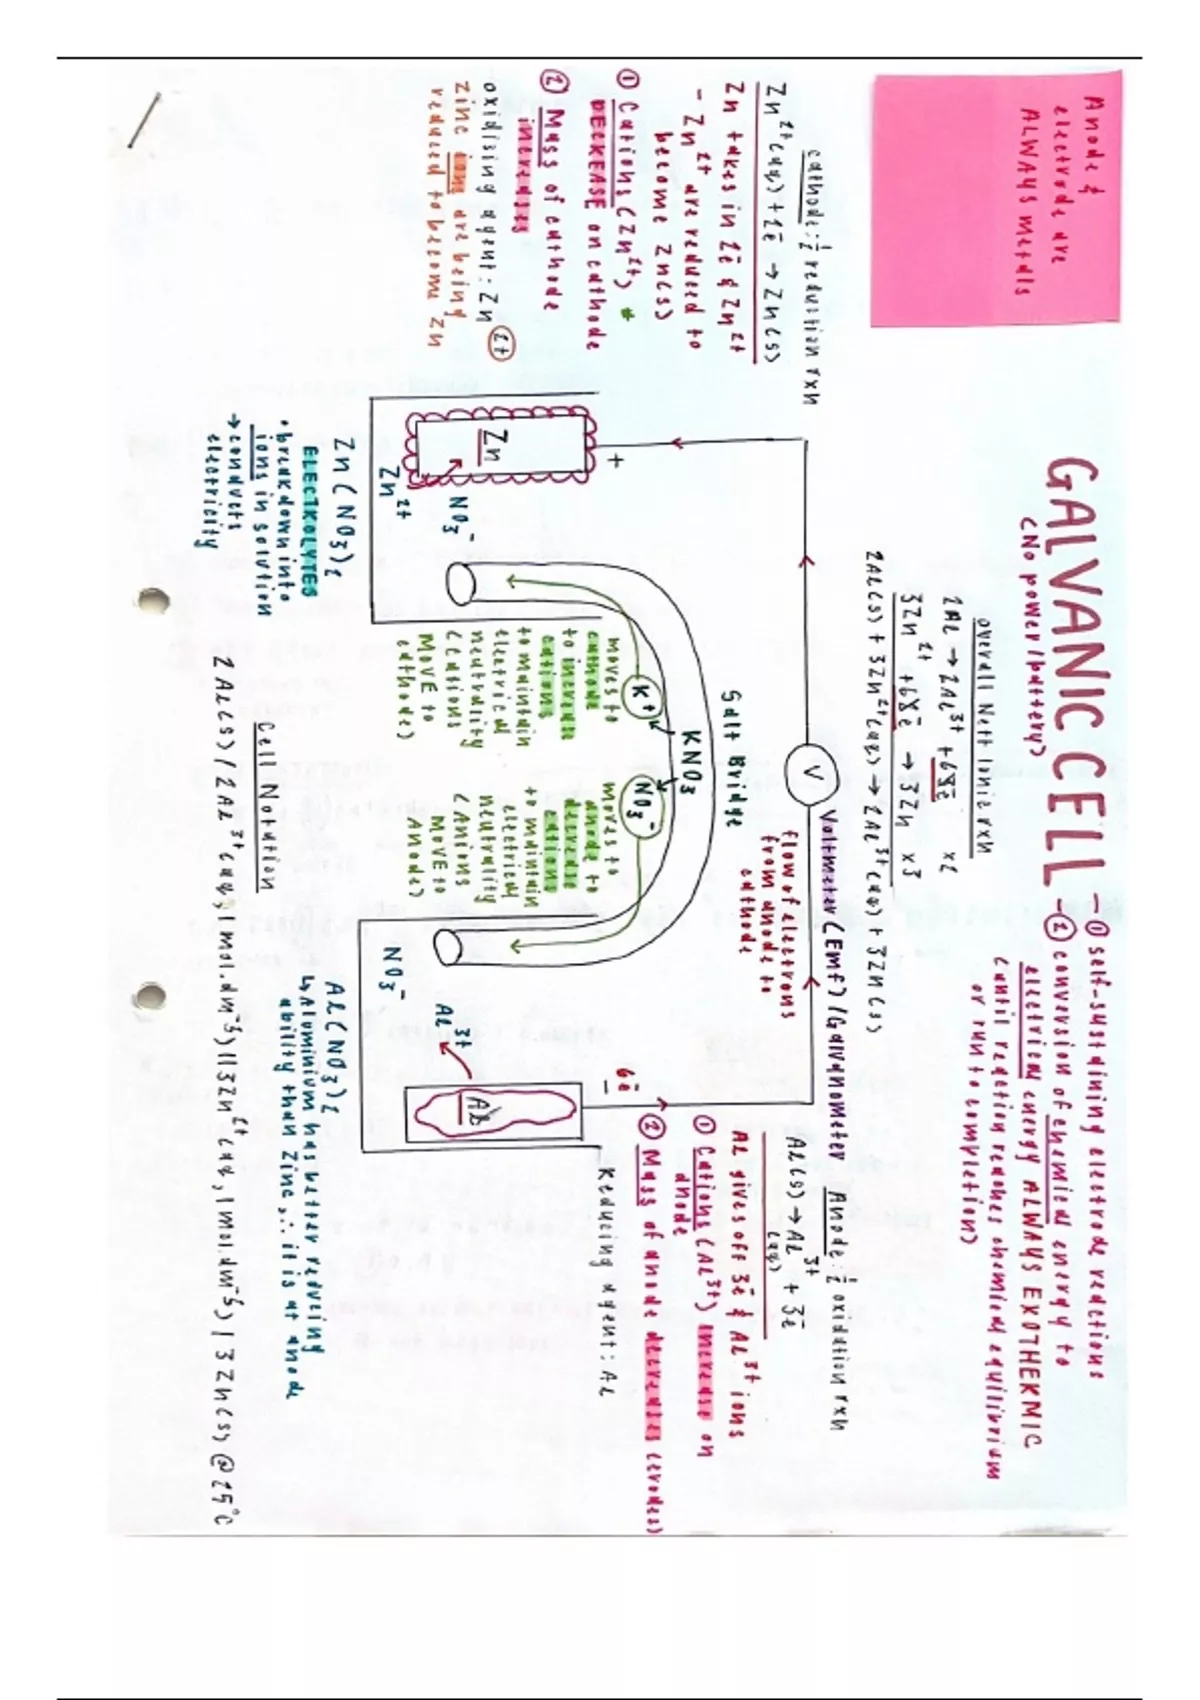 Anode &
electrode are
ALWAYS metals
GALVANIC CELL
(No power/battery)
- ① self-sustaining electrode reactions
- ② conversion of chemical energy to
electrical energy ALWAYS EXOTHERMIC
(until reaction reaches chemical equilibrium
or run to completion)
overall Nett Ionic rxn
2Al → 2Al³⁺ + 6e̅ x2
3Zn²⁺ + 6e̅ → 3Zn x3
2Al(s) + 3Zn²⁺(aq) → 2Al³⁺(aq) + 3Zn(s)
cathode: ½ reduction rxn
Zn²⁺(aq) + 2e̅ → Zn(s)
Zn takes in 2e̅ & Zn²⁺
- Zn²⁺ are reduced to
become Zn(s)
① Cations (Zn²⁺) *
DECREASE on cathode
② Mass of cathode
increases
oxidising agent: Zn²⁺
Zinc ions are being
reduced to become Zn
V
Voltmeter (Emf) / Galvanometer
flow of electrons
from anode to
cathode
Anode: ½ oxidation rxn
Al(s) → Al³⁺ + 3e̅
(aq)
Al gives off 3e̅ & Al³⁺ ions
① Cations (Al³⁺) increase on
anode
② Mass of anode decreases (erodes)
Reducing agent: Al
6e̅
−
+
Salt Bridge
KNO₃
K+
NO₃⁻
moves to
cathode
to increase
cations
to maintain
electrical
neutrality
(cations
MOVE to
cathode)
moves to
anode to
decrease
cations
to maintain
electrical
neutrality
(Anions
MOVE to
Anode)
Zn
NO₃⁻
Zn²⁺
Zn(NO₃)₂
ELECTROLYTES
• break down into
ions in solution
→ conducts
electricity
Al
Al³⁺
NO₃⁻
Al(NO₃)₂
↳ Aluminium has better reducing
ability than Zinc ∴ it is at anode
Cell Notation
2Al(s) / 2Al³⁺(aq, 1 mol.dm⁻³) || 3Zn²⁺(aq, 1 mol.dm⁻³) | 3Zn(s) @ 25°C